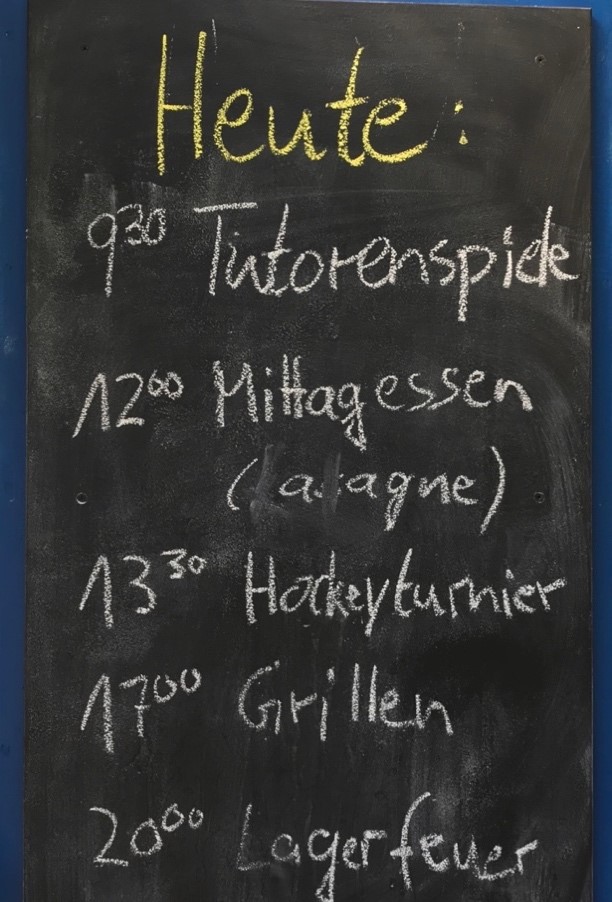 Heute:
9³⁰ Tutorenspiele
12⁰⁰ Mittagessen
(Lasagne)
13³⁰ Hockeyturnier
17⁰⁰ Grillen
20⁰⁰ Lagerfeuer